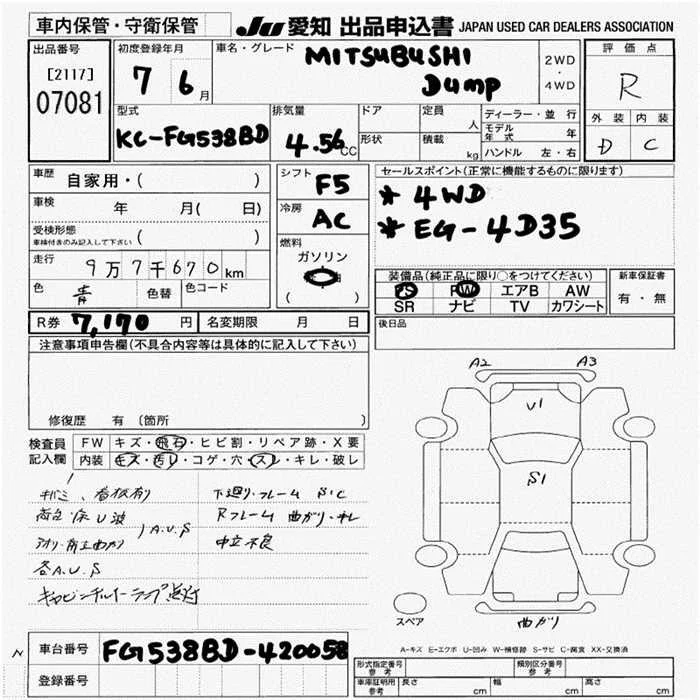 車内保管・守衛保管
JU 愛知 出品申込書 JAPAN USED CAR DEALERS ASSOCIATION
出品番号
[2117]
07081
初度登録年月
7 6月
車名・グレード
MITSUBUSHI
Dump
2WD
・
4WD
評価点
R
外装 内装
D C
型式
KC-FG538BD
排気量
4.56CC
ドア
形状
定員
人
積載
kg
ディーラー・並行
モデル年式 年
ハンドル 左・右
車歴 自家用・( )
車検 年 月( 日)
受検形態
車検付きのみ記入して下さい ( )
走行 9万7千670km
色 青 色替 色コード
シフト F5
冷房 AC
燃料
ガソリン
( )
セールスポイント(正常に機能するものに限ります)
* 4WD
* EG-4D35
装備品(純正品に限り○をつけてください)
PS PW エアB AW
SR ナビ TV カワシート
新車保証書
有・無
後日品
R券 7,170円 名変期限 月 日
注意事項申告欄(不具合内容等は具体的に記入して下さい)
修復歴 有(箇所 )
検査員
記入欄
FW キズ・飛石・ヒビ割・リペア跡・X要
内装 キズ・汚レ・コゲ・穴・スレ・キレ・破レ
キバミ、看板有
荷台・床U波
アオリ・前立曲がり
A.U.S
各A.U.S
下廻り・フレーム S.C
Rフレーム 曲がり・キレ
中立不良
A2 A3
U1
S1
曲がり
スペア
A-キズ E-エクボ U-凹み W-補修跡 S-サビ C-腐食 XX-交換済
車台番号 FG538BD-420058
登録番号
形式指定番号 参考
類別区分番号 参考
車庫証明用 参考 長さ cm 幅 cm 高さ cm